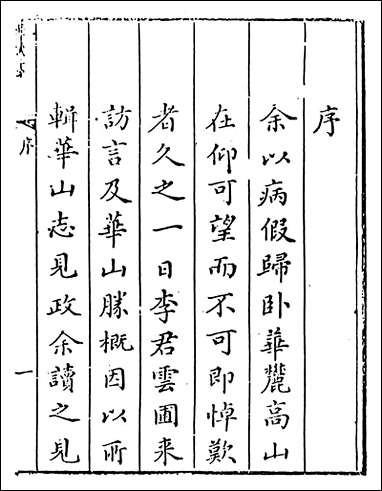 序
余以病假歸卧華麓高山
在仰可望而不可即悼歎
者久之一日李君雲圃来
訪言及華山勝概因以所
輯華山志見政余讀之見
序
一